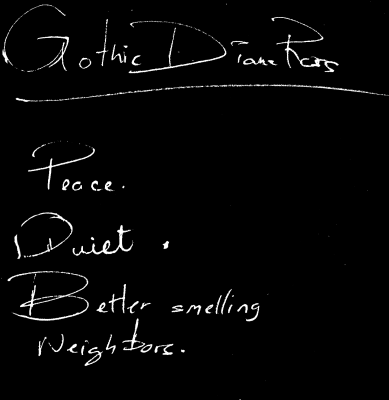 Gothic Diane Ross
Peace.
Quiet.
Better smelling
Neighbors.